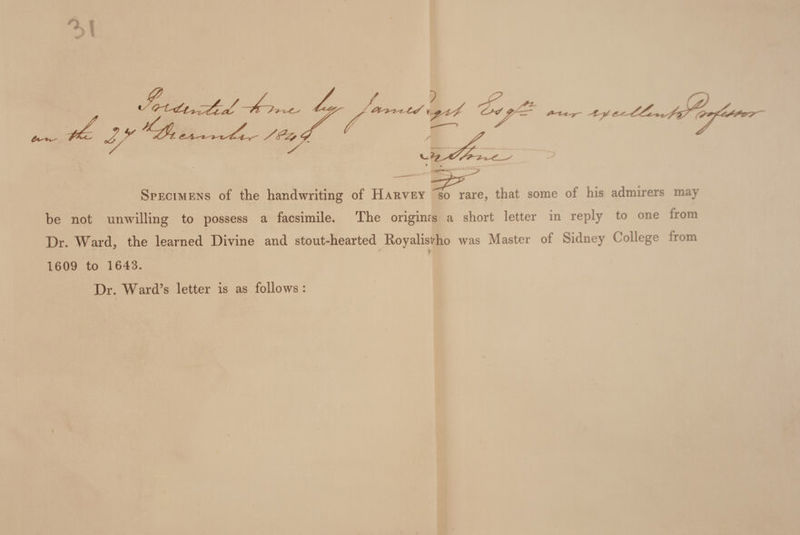 31
Presented to me by James Paget Esqre our excellent Professor
on the 27th December 1849.
Stone
SPECIMENS of the handwriting of HARVEY so rare, that some of his admirers may
be not unwilling to possess a facsimile. The origin s a short letter in reply to one from
Dr. Ward, the learned Divine and stout-hearted Royalist ho was Master of Sidney College from
1609 to 1643.
Dr. Ward's letter is as follows :